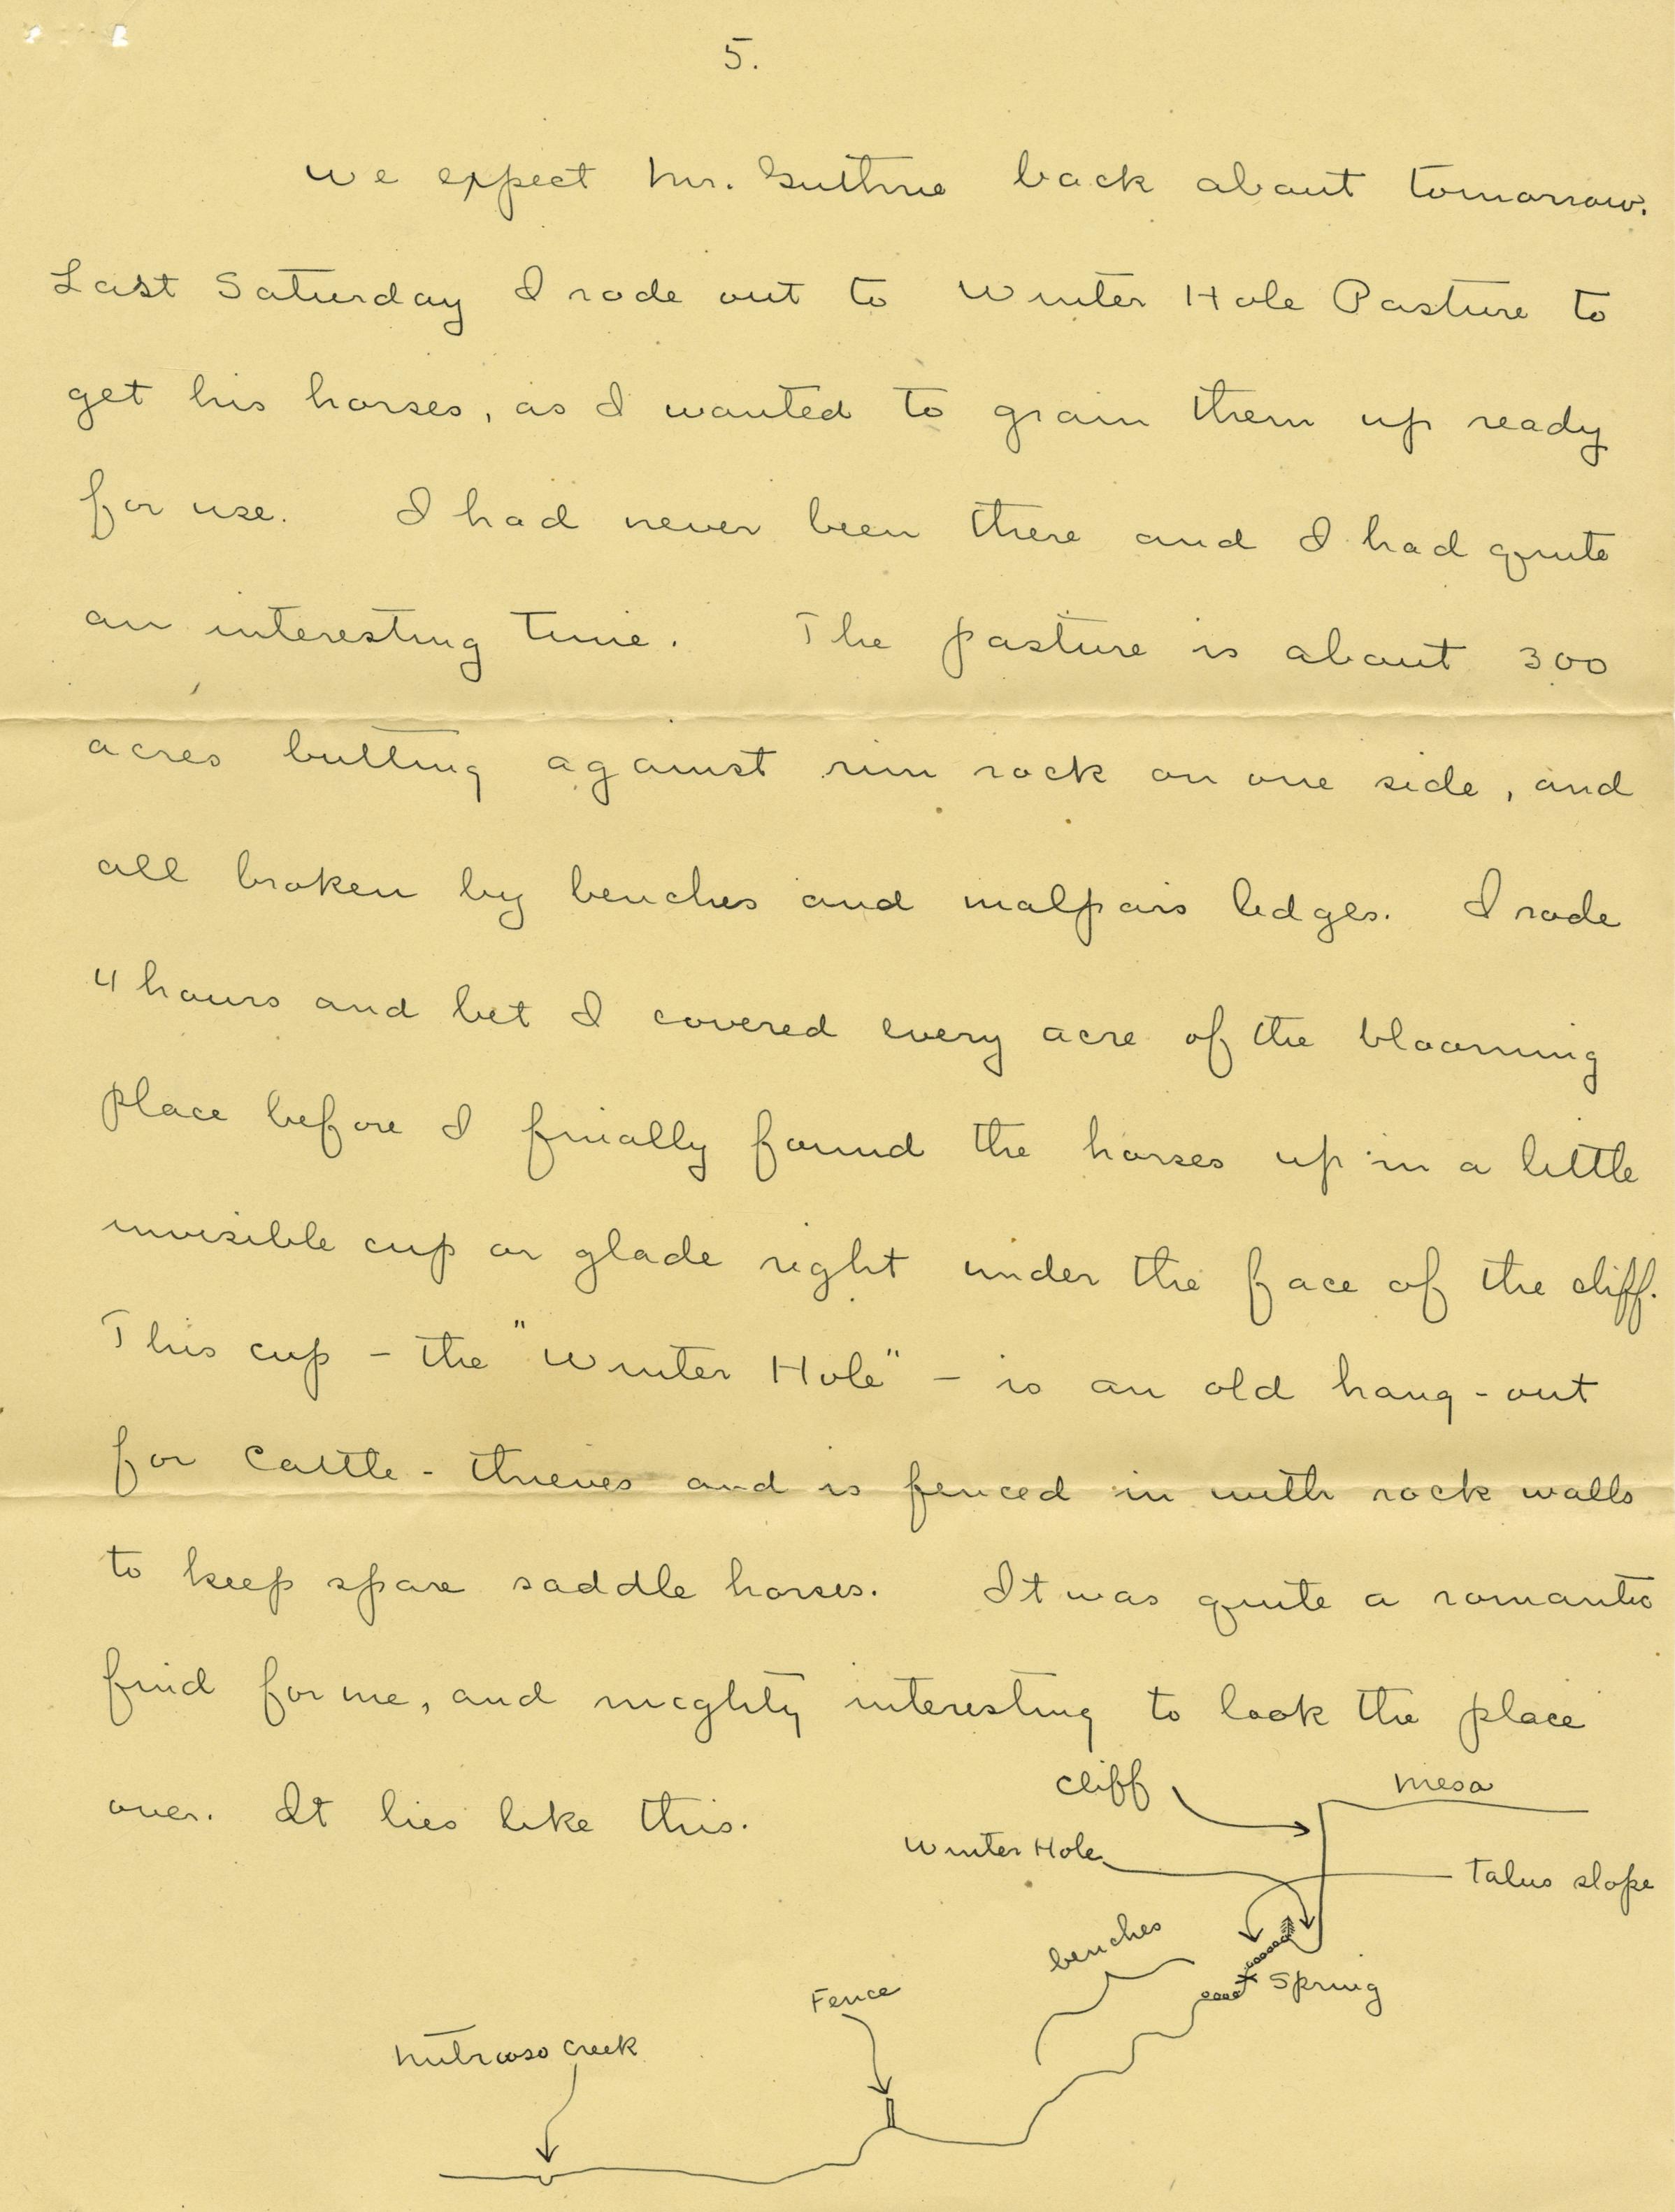 5.
We expect Mr. Guthrie back about tomorrow.
Last Saturday I rode out to Winter Hole Pasture to
get his horses, as I wanted to grain them up ready
for use. I had never been there and I had quite
an interesting time. The pasture is about 300
acres butting against rim rock on one side, and
all broken by benches and malpais ledges. I rode
4 hours and bet I covered every acre of the blooming
place before I finally found the horses up in a little
invisible cup or glade right under the face of the cliff.
This cup - the "Winter Hole" - is an old hang-out
for cattle-thieves and is fenced in with rock walls
to keep spare saddle horses. It was quite a romantic
find for me, and mighty interesting to look the place
over. It lies like this.
cliff
mesa
Winter Hole
Talus slope
benches
Spring
Fence
Nutrioso Creek